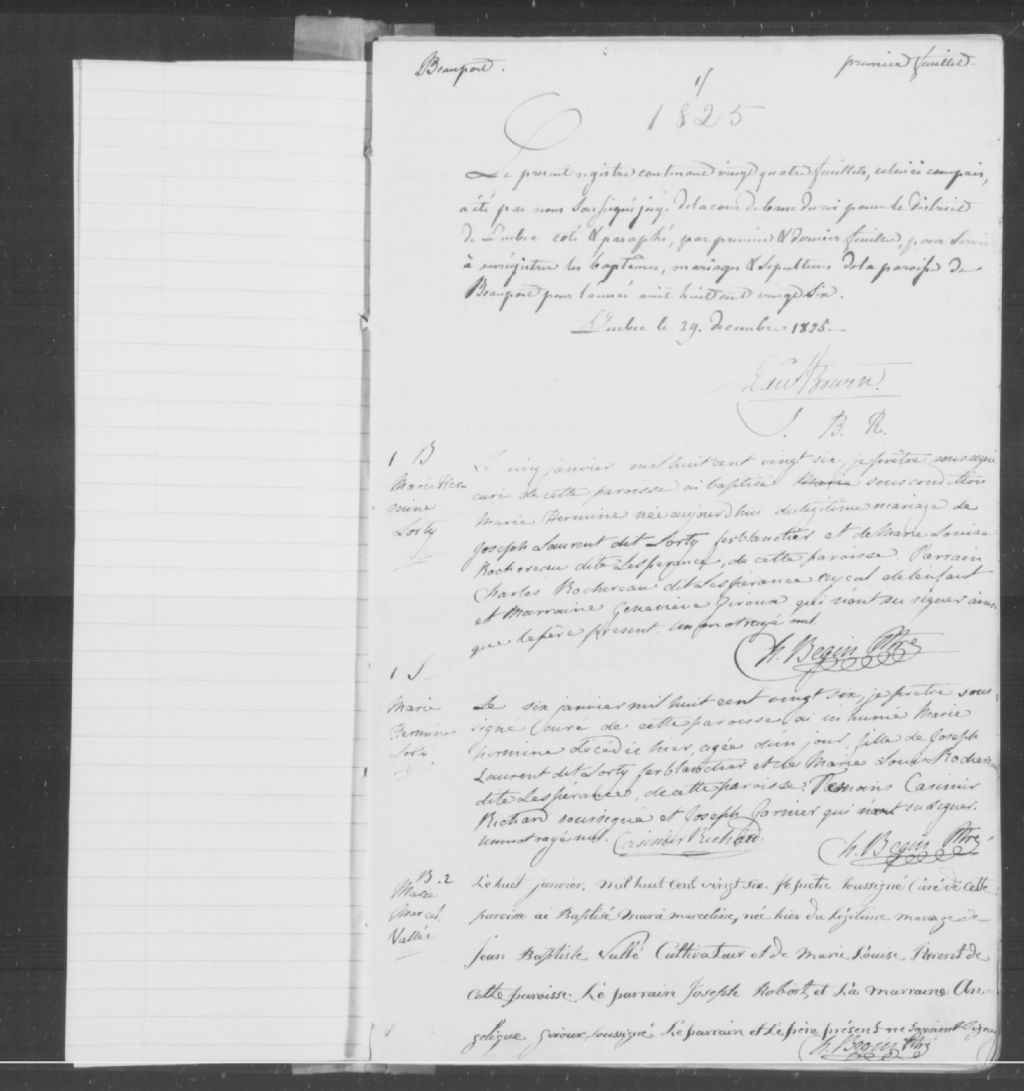 Beauport.
premier feuillet
1/
1825
Le present registre contenant vingt quatre feuillets, celui ci compris,
a été par nous soussigné juge de la cour du banc du roi pour le district
de Quebec coté & paraphé, par premier & dernier feuillet, pour servir
à enrégistrer les baptêmes, mariages & sepultures de la paroisse de
Beauport pour l'année mil huit cent vingt six.
Quebec le 29. decembre 1825.
Edwd Bowen.
J. B. R.
1 B
Marie Her-
mine
Lorty
Le cinq janvier mil huit cent vingt six, je prêtre soussigné
curé de cette paroisse ai baptisé Marie sous condition
Marie Hermine née aujourd'hui du légitime mariage de
Joseph Laurent dit Lorty ferblantier et de Marie Louise
Rochereau dite Lespérance, de cette paroisse. Parrain
Charles Rochereau dit Lespérance ayeul de l'enfant
et Marraine Genevieve Giroux qui n'ont su signer ainsi
que le père present. un mot rayé nul.
h. Begin Ptre
1 S
Marie
Hermine
Lorty
Le six janvier mil huit cent vingt six, je prêtre sous-
signé Curé de cette paroisse ai inhumé Marie
hermine décédée hier, agée d'un jour, fille de Joseph
Laurent dit Lorty ferblantier et de Marie Louise Rochereau
dite Lespérance, de cette paroisse. Temoins Casimir
Richard soussigné et Joseph Garnier qui n'ont su signer.
un mot rayé nul. Casimir Richard
h. Begin Ptre
B. 2
Marie
Marcel.
Vallée
Le huit janvier, mil huit cent vingt six. Je prêtre soussigné Curé de cette
paroisse ai Baptisé Marie marceline, née hier du légitime mariage de
Jean Baptiste Vallé Cultivateur et de Marie Louise Parent de
Cette paroisse. Le parrain Joseph Robert, et La marraine An-
gelique giroux, soussigné. Le parrain et Le père présent ne savoient signer
h. Begin Ptre